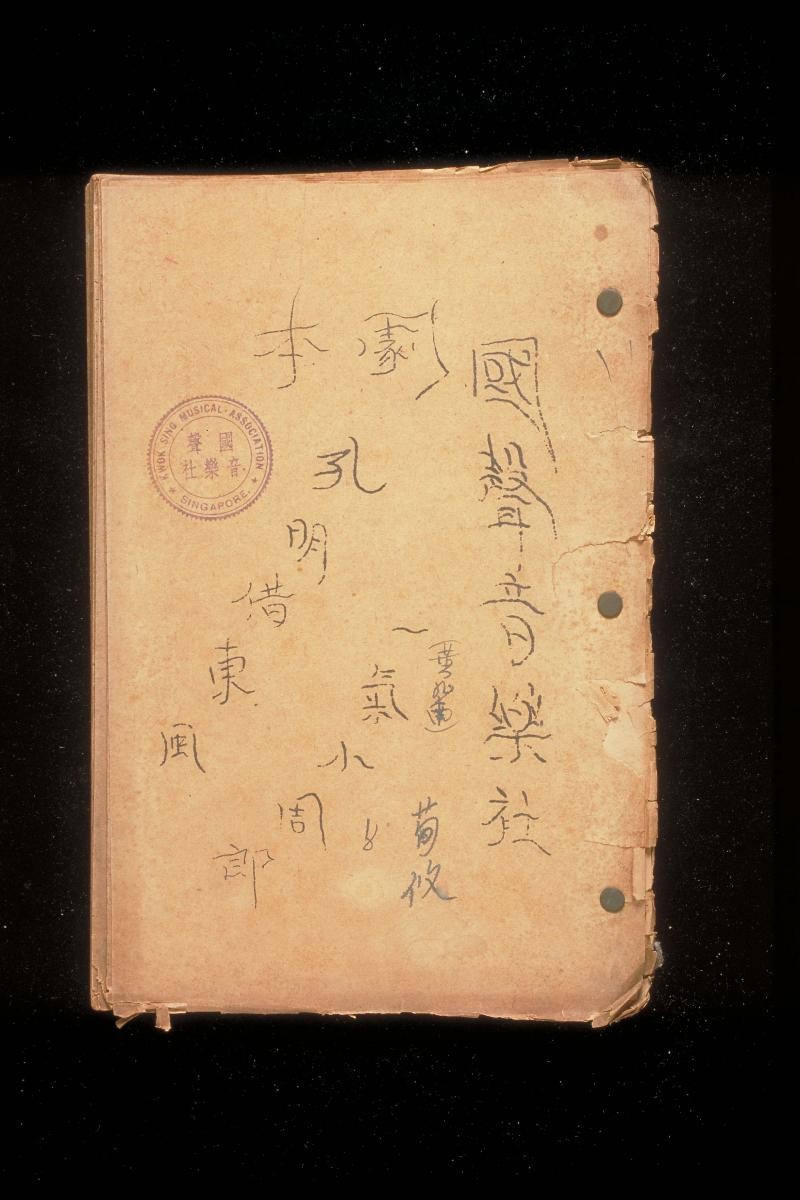 國聲音樂社
劇本
一氣小周郎
孔明借東風
荀攸
KWOK SING MUSICAL · ASSOCIATION
國聲
音樂社
★ SINGAPORE. ★